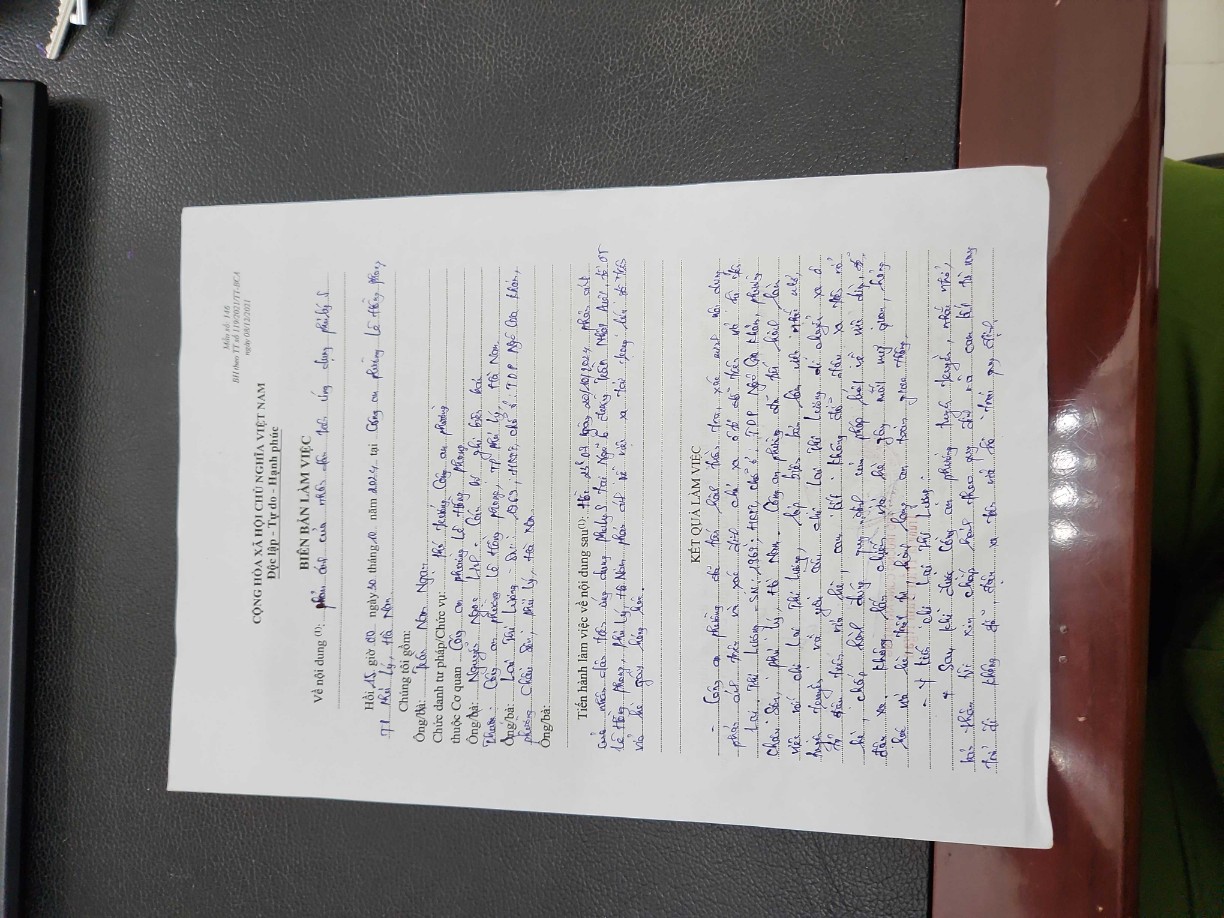 Mẫu số: 146
BH theo TT số 119/2021/TT-BCA
ngày 08/12/2021
CỘNG HÒA XÃ HỘI CHỦ NGHĨA VIỆT NAM
Độc lập - Tự do - Hạnh phúc
BIÊN BẢN LÀM VIỆC
Về nội dung (1): phản ánh của nhân dân trên ứng dụng phủ lý S
Hồi 15 giờ 00 ngày 30 tháng 10 năm 2024 tại Công an phường Lê Hồng Phong,
TP Phủ Lý, Hà Nam
Chúng tôi gồm:
Ông/bà: Trần Nam Ngạn
Chức danh tư pháp/Chức vụ: Phó trưởng Công an phường
thuộc Cơ quan Công an phường Lê Hồng Phong
Ông/bà: Nguyễn Ngọc - Cán bộ ghi biên bản
Thuộc: Công an phường Lê Hồng Phong, TP Phủ Lý, Hà Nam.
Ông/bà: Lại Thị Lương - SN: 1969, HKTT, chỗ ở: TDP Ngô Gia Khảm,
phường Châu Sơn, Phủ Lý, Hà Nam.
Ông/bà:
Tiến hành làm việc về nội dung sau(1): Hồi ngày 20/10/2024 phản ánh
của nhân dân trên ứng dụng PhulyS tại Ngõ 6 đường Trần Nhật Duật, tổ
Lê Hồng Phong, Phủ Lý, Hà Nam phản ánh về việc xe tải trọng lớn đỗ trên
vỉa hè gây hỏng hóc.
KẾT QUẢ LÀM VIỆC
- Công an phường đã tiến hành kiểm tra, xác minh nội dung
phản ánh trên và xác định chủ xe ô tô đỗ trên vỉa hè
Lại Thị Lương - SN: 1969; HKTT, chỗ ở: TDP Ngô Gia Khảm, phường
Châu Sơn, Phủ Lý, Hà Nam. Công an phường đã tiến hành làm
việc với chị Lại Thị Lương, lập biên bản làm việc nhắc nhở,
tuyên truyền và yêu cầu chị Lại Thị Lương di chuyển xe ô
tô đậu trên vỉa hè, cam kết không đỗ đậu xe trên vỉa
hè, chấp hành đúng quy định của pháp luật về việc dừng, đỗ
đậu xe. Không lấn chiếm vỉa hè gây mất mỹ quan, hỏng
hóc vỉa hè trật tự hành lang an toàn giao thông.
- Ý kiến chị Lại Thị Lương:
+ Sau khi được Công an phường tuyên truyền, nhắc nhở,
bản thân tôi xin chấp hành theo quy định và cam kết từ nay
trở đi không đỗ, đậu xe trên vỉa hè trái quy định.